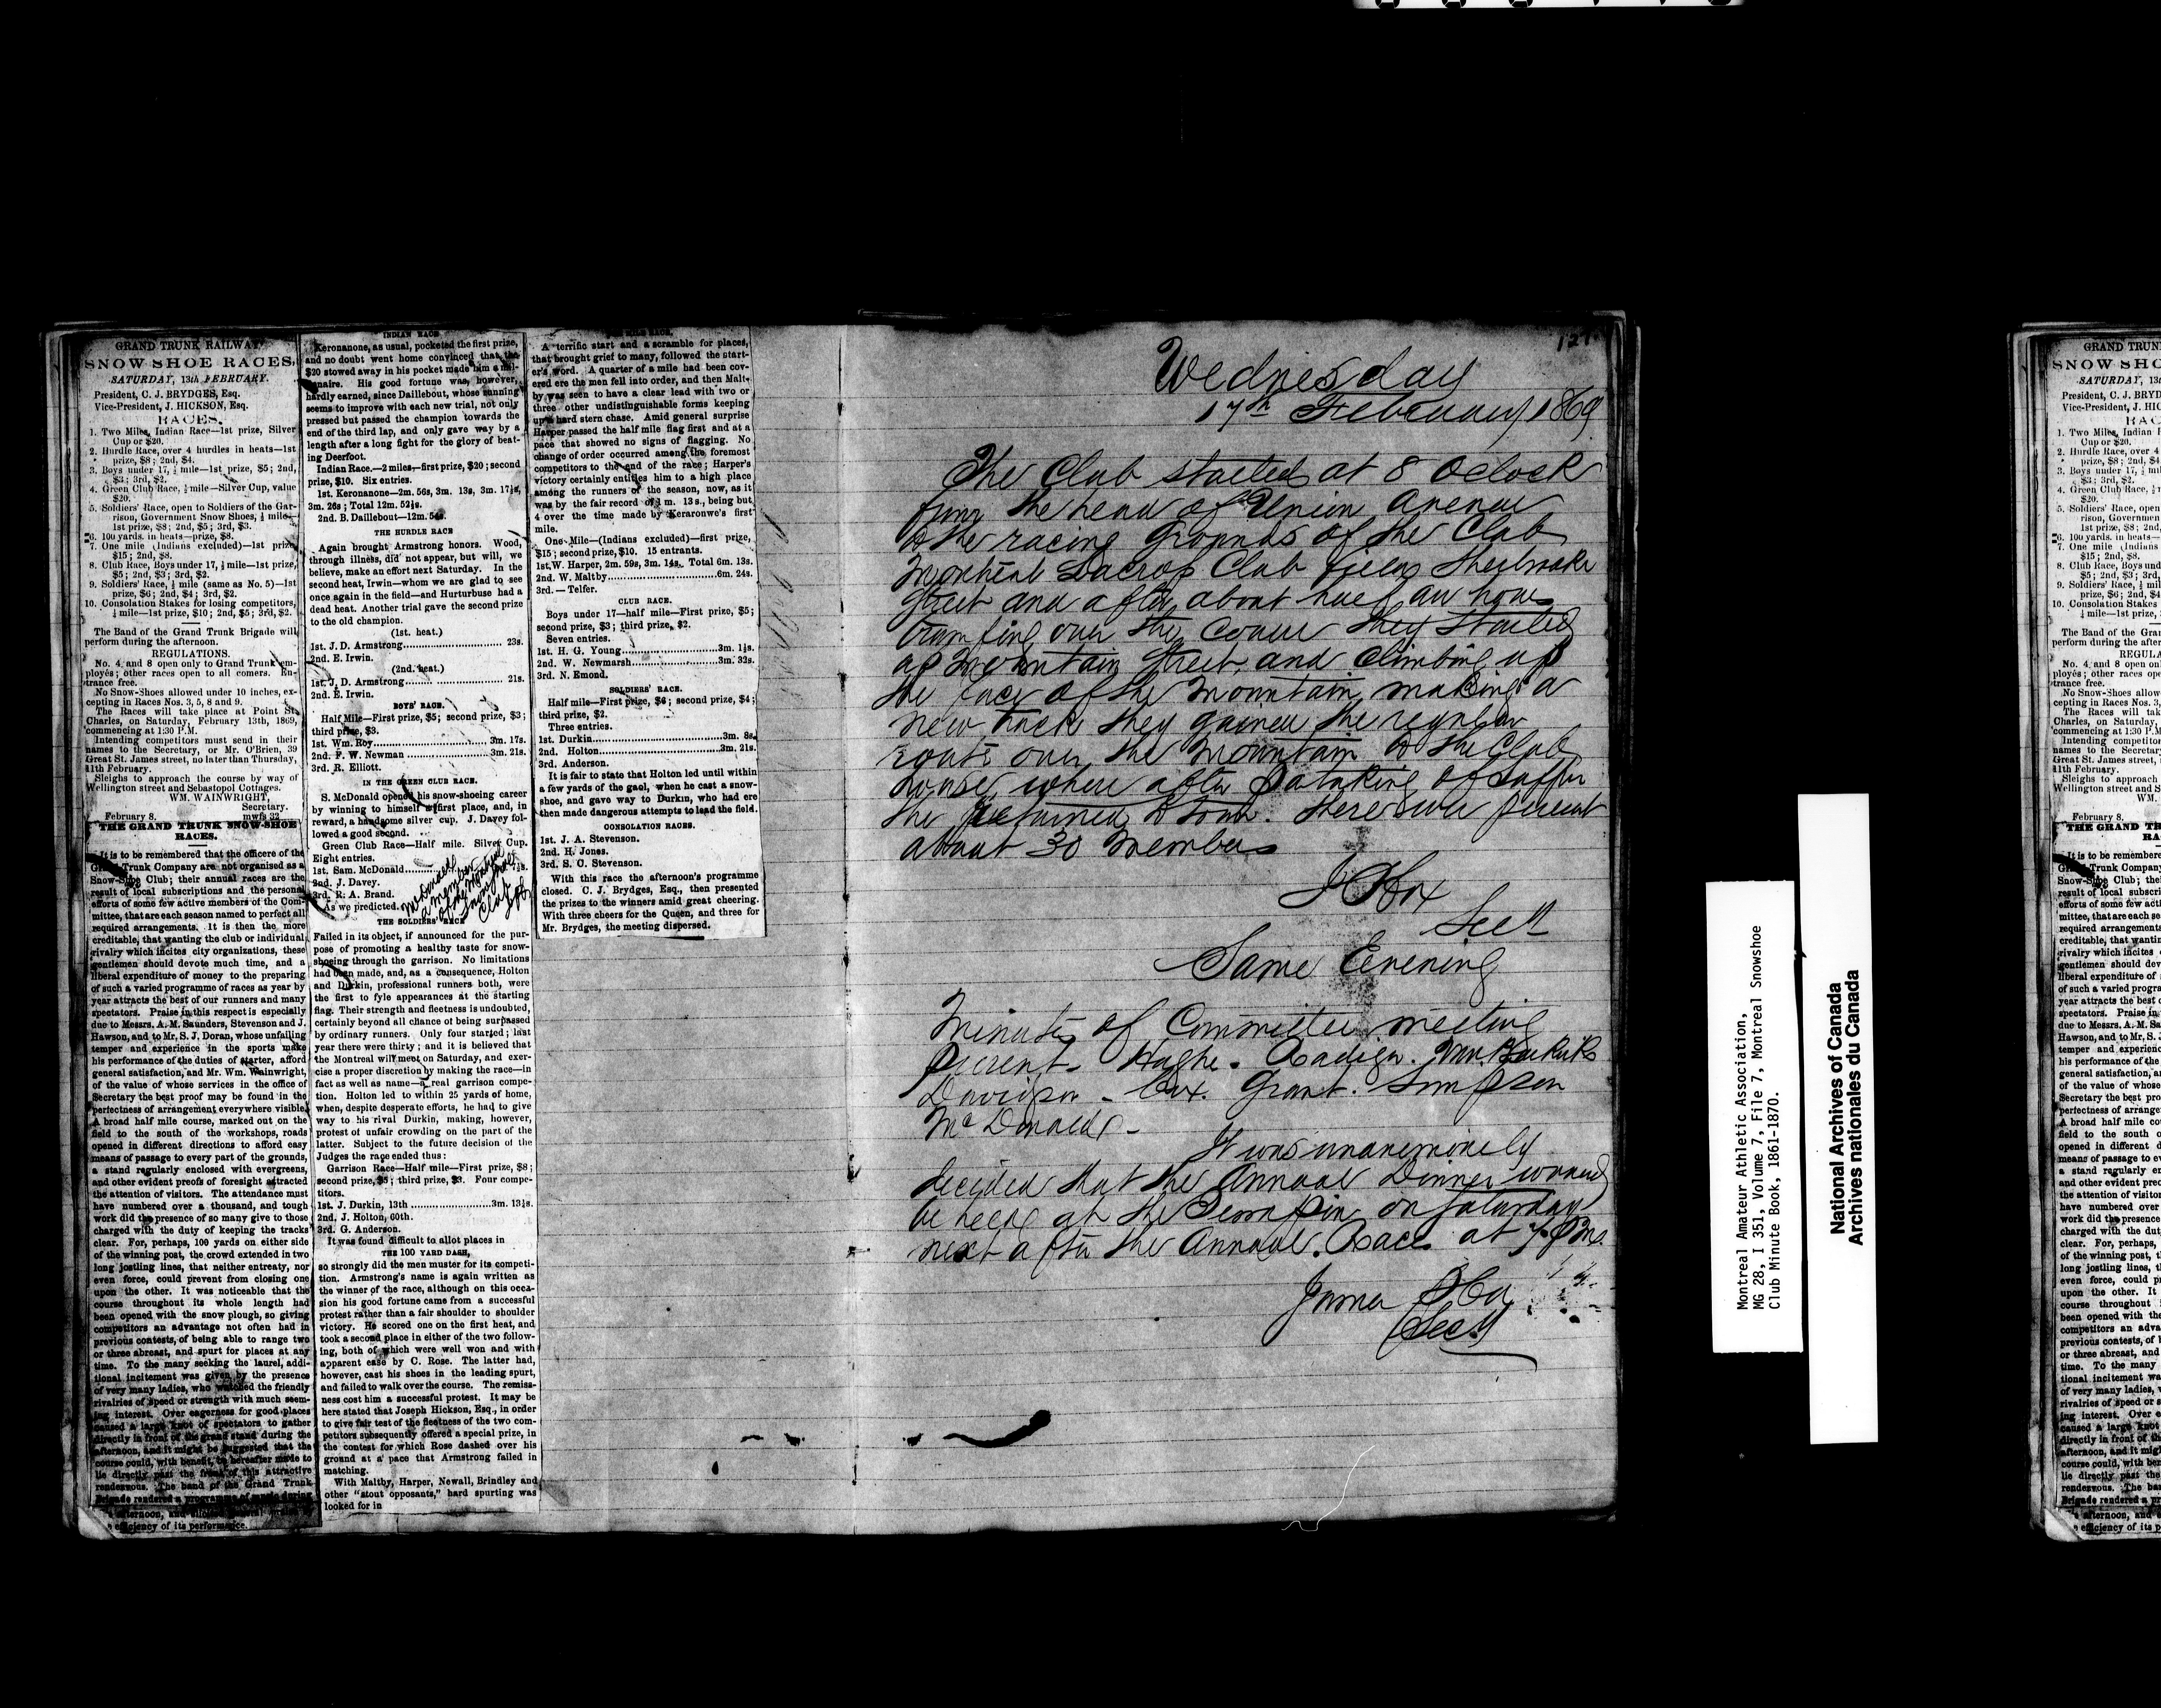 GRAND TRUNK RAILWAY
SNOW SHOE RACES,
SATURDAY, 13th FEBRUARY.
President, C. J. BRYDGES, Esq.
Vice-President, J. HICKSON, Esq.
RACES.
1. Two Miles, Indian Race—1st prize, Silver
Cup or $20.
2. Hurdle Race, over 4 hurdles in heats—1st
prize, $8; 2nd, $4.
3. Boys under 17, ½ mile—1st prize, $5; 2nd,
$3; 3rd, $2.
4. Green Club Race, ½ mile—Silver Cup, value
$20.
5. Soldiers' Race, open to Soldiers of the Gar-
rison, Government Snow Shoes, ½ mile—
1st prize, $8; 2nd, $5; 3rd, $3.
6. 100 yards. in heats—prize, $8.
7. One mile (Indians excluded)—1st prize
$15; 2nd, $8.
8. Club Race, Boys under 17, ½ mile—1st prize,
$5; 2nd, $3; 3rd, $2.
9. Soldiers' Race, ½ mile (same as No. 5)—1st
prize, $6; 2nd, $4; 3rd, $2.
10. Consolation Stakes for losing competitors,
½ mile—1st prize, $10; 2nd, $5; 3rd, $2.
The Band of the Grand Trunk Brigade will
perform during the afternoon.
REGULATIONS.
No. 4 and 8 open only to Grand Trunk em-
ployés; other races open to all comers. En-
trance free.
No Snow-Shoes allowed under 10 inches, ex-
cepting in Races Nos. 3, 5, 8 and 9.
The Races will take place at Point St.
Charles, on Saturday, February 13th, 1869,
commencing at 1:30 P.M.
Intending competitors must send in their
names to the Secretary, or Mr. O'Brien, 39
Great St. James street, no later than Thursday,
11th February.
Sleighs to approach the course by way of
Wellington street and Sebastopol Cottages.
WM. WAINWRIGHT,
Secretary.
February 8. mwfs 32
THE GRAND TRUNK SNOW-SHOE
RACES.
It is to be remembered that the officere of the
Grand Trunk Company are not organised as a
Snow-Shoe Club; their annual races are the
result of local subscriptions and the personal
efforts of some few active members of the Com-
mittee, that are each season named to perfect all
required arrangements. It is then the more
creditable, that wanting the club or individual
rivalry which incites city organizations, these
gentlemen should devote much time, and a
liberal expenditure of money to the preparing
of such a varied programme of races as year by
year attracts the best of our runners and many
spectators. Praise in this respect is especially
due to Messrs. A. M. Saunders, Stevenson and J.
Hawson, and to Mr. S. J. Doran, whose unfailing
temper and experience in the sports make
his performance of the duties of starter, afford
general satisfaction, and Mr. Wm. Wainwright,
of the value of whose services in the office of
Secretary the best proof may be found in the
perfectness of arrangement everywhere visible.
A broad half mile course, marked out on the
field to the south of the workshops, roads
opened in different directions to afford easy
means of passage to every part of the grounds,
a stand regularly enclosed with evergreens,
and other evident preofs of foresight attracted
the attention of visitors. The attendance must
have numbered over a thousand, and tough
work did the presence of so many give to those
charged with the duty of keeping the tracks
clear. For, perhaps, 100 yards on either side
of the winning post, the crowd extended in two
long jostling lines, that neither entreaty, nor
even force, could prevent from closing one
upon the other. It was noticeable that the
course throughout its whole length had
been opened with the snow plough, so giving
competitors an advantage not often had in
previous contests, of being able to range two
or three abreast, and spurt for places at any
time. To the many seeking the laurel, addi-
tional incitement was given by the presence
of very many ladies, who watched the friendly
rivalries of speed or strength with much seem-
ing interest. Over eagerness for good places
caused a large knot of spectators to gather
directly in front of the grand stand during the
afternoon, and it might be suggested that the
course could, with benefit, be hereafter made to
lie directly past the front of this attractive
rendezvous. The band of the Grand Trunk
Brigade rendered a programme of music during
afternoon, and
efficiency of its performance.
INDIAN RACE
Keronanone, as usual, pocketed the first prize,
and no doubt went home convinced that the
$20 stowed away in his pocket made him a mil-
lionaire. His good fortune was, however,
hardly earned, since Daillebout, whose running
seems to improve with each new trial, not only
pressed but passed the champion towards the
end of the third lap, and only gave way by a
length after a long fight for the glory of beat-
ing Deerfoot.
Indian Race.—2 miles,—first prize, $20; second
prize, $10. Six entries.
1st. Keronanone—2m. 56s, 3m. 13s, 3m. 17½s,
3m. 26s; Total 12m. 52½s.
2nd. B. Daillebout—12m. 54s.
THE HURDLE RACE
Again brought Armstrong honors. Wood,
through illness, did not appear, but will, we
believe, make an effort next Saturday. In the
second heat, Irwin—whom we are glad to see
once again in the field—and Hurturbuse had a
dead heat. Another trial gave the second prize
to the old champion.
(1st. heat.)
1st. J. D. Armstrong 23s.
2nd. E. Irwin.
(2nd. heat.)
1st. J. D. Armstrong 21s.
2nd. E. Irwin.
BOYS' RACE.
Half Mile—First prize, $5; second prize, $3;
third prize, $3.
1st. Wm. Roy 3m. 17s.
2nd. F. W. Newman 3m. 21s.
3rd. R. Elliott.
IN THE GREEN CLUB RACE.
S. McDonald opened his snow-shoeing career
by winning to himself a first place, and, in
reward, a handsome silver cup. J. Davey fol-
lowed a good second.
Green Club Race—Half mile. Silver Cup.
Eight entries.
1st. Sam. McDonald
2nd. J. Davey.
3rd. R. A. Brand.
As we predicted.
McDonald
a member
of the Montreal
Snow Shoe
Club
THE SOLDIERS' RACE
Failed in its object, if announced for the pur-
pose of promoting a healthy taste for snow-
shoeing through the garrison. No limitations
had been made, and, as a consequence, Holton
and Durkin, professional runners both, were
the first to fyle appearances at the starting
flag. Their strength and fleetness is undoubted,
certainly beyond all chance of being surpassed
by ordinary runners. Only four started; last
year there were thirty; and it is believed that
the Montreal will meet on Saturday, and exer-
cise a proper discretion by making the race—in
fact as well as name—a real garrison compe-
tion. Holton led to within 25 yards of home,
when, despite desperate efforts, he had to give
way to his rival Durkin, making, however,
protest of unfair crowding on the part of the
latter. Subject to the future decision of the
Judges the race ended thus:
Garrison Race—Half mile—First prize, $8;
second prize, $5; third prize, $3. Four compe-
titors.
1st. J. Durkin, 13th 3m. 13½s.
2nd. J. Holton, 60th.
3rd. G. Anderson.
It was found difficult to allot places in
THE 100 YARD DASH,
so strongly did the men muster for its competi-
tion. Armstrong's name is again written as
the winner of the race, although on this occa-
sion his good fortune came from a successful
protest rather than a fair shoulder to shoulder
victory. He scored one on the first heat, and
took a second place in either of the two follow-
ing, both of which were well won and with
apparent ease by C. Rose. The latter had,
however, cast his shoes in the leading spurt,
and failed to walk over the course. The remiss-
ness cost him a successful protest. It may be
here stated that Joseph Hickson, Esq., in order
to give fair test of the fleetness of the two com-
petitors subsequently offered a special prize, in
the contest for which Rose dashed over his
ground at a pace that Armstrong failed in
matching.
With Maltby, Harper, Newall, Brindley and
other "stout opposants," hard spurting was
looked for in
MILE RACE.
A terrific start and a scramble for places,
that brought grief to many, followed the start-
er's word. A quarter of a mile had been cov-
ered ere the men fell into order, and then Malt-
by was seen to have a clear lead with two or
three other undistinguishable forms keeping
up a hard stern chase. Amid general surprise
Harper passed the half mile flag first and at a
pace that showed no signs of flagging. No
change of order occurred among the foremost
competitors to the end of the race; Harper's
victory certainly entitles him to a high place
among the runners of the season, now, as it
was by the fair record of 3 m. 13 s., being but
4 over the time made by Keraronwe's first
mile.
One-Mile—(Indians excluded)—first prize,
$15; second prize, $10. 15 entrants.
1st. W. Harper, 2m. 59s, 3m. 14s. Total 6m. 13s.
2nd. W. Maltby 6m. 24s.
3rd.—Telfer.
CLUB RACE.
Boys under 17—half mile—First prize, $5;
second prize, $3; third prize, $2.
Seven entries.
1st. H. G. Young 3m. 1½s.
2nd. W. Newmarsh 3m. 32s.
3rd. N. Emond.
SOLDIERS' RACE.
Half mile—First prize, $6; second prize, $4;
third prize, $2.
Three entries.
1st. Durkin 3m. 8s.
2nd. Holton 3m. 21s.
3rd. Anderson.
It is fair to state that Holton led until within
a few yards of the gaol, when he cast a snow-
shoe, and gave way to Durkin, who had ere
then made dangerous attempts to lead the field.
CONSOLATION RACES.
1st. J. A. Stevenson.
2nd. H. Jones.
3rd. S. C. Stevenson.
With this race the afternoon's programme
closed. C. J. Brydges, Esq., then presented
the prizes to the winners amid great cheering.
With three cheers for the Queen, and three for
Mr. Brydges, the meeting dispersed.
Wednesday
17th February 1869
The Club started at 8 Oclock
from the head of Union Avenue
to the racing Grounds of the Club
Montreal Lacross Club field Sherbrooke
Street and after about half an hour
tramping over the Course they started
up Mountain Street and Climbing up
the face of the Mountain making a
new track they gained the regular
route over the Mountain to the Club
house where after Partaking of Supper
the Returned to town. There were present
about 30 Members
Same Evening
Minutes of Committee meeting
Present. Hughes. Radiger.
Davidson - Cox. Grant. Simpson
McDonald -
It was unanimously
decided that the Annual Dinner would
be held at the Terrapin on Saturday
next after the Annual Races at 7. P.M.
Montreal Amateur Athletic Association,
MG 28, I 351, Volume 7, File 7, Montreal Snowshoe
Club Minute Book, 1861-1870.
National Archives of Canada
Archives nationales du Canada